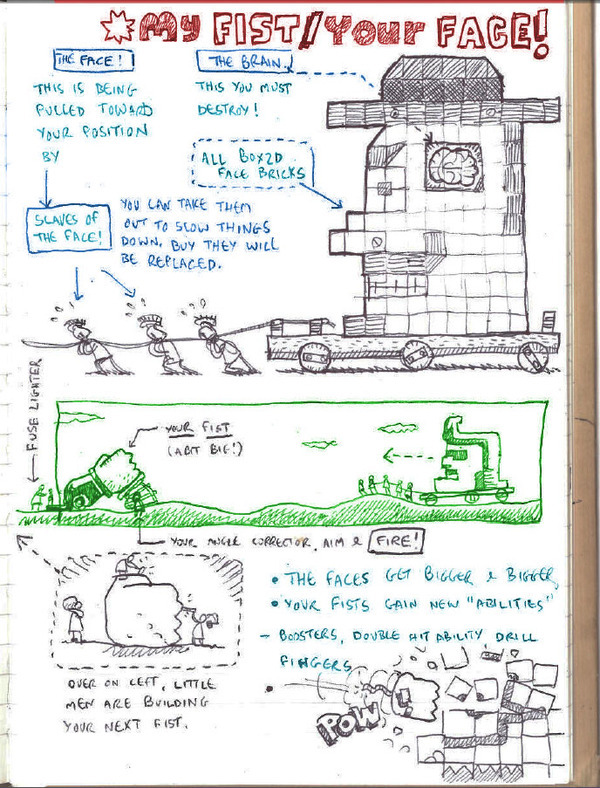 My FIST/YOUR FACE!
THE FACE!
THIS IS BEING
PULLED TOWARD
YOUR POSITION
BY
SLAVES OF
THE FACE!
YOU CAN TAKE THEM
OUT TO SLOW THINGS
DOWN. BUY THEY WILL
BE REPLACED.
THE BRAIN.
THIS YOU MUST
DESTROY!
ALL BOX2D
FACE BRICKS
FUSE LIGHTER
YOUR FIST
(ABIT BIG!)
YOUR ANGLE CORRECTOR, AIM & FIRE!
OVER ON LEFT, LITTLE
MEN ARE BUILDING
YOUR NEXT FIST.
• THE FACES GET BIGGER & BIGGER
• YOUR FISTS GAIN NEW "ABILITIES"
- BOOSTERS, DOUBLE HIT ABILITY DRILL
FINGERS
POW